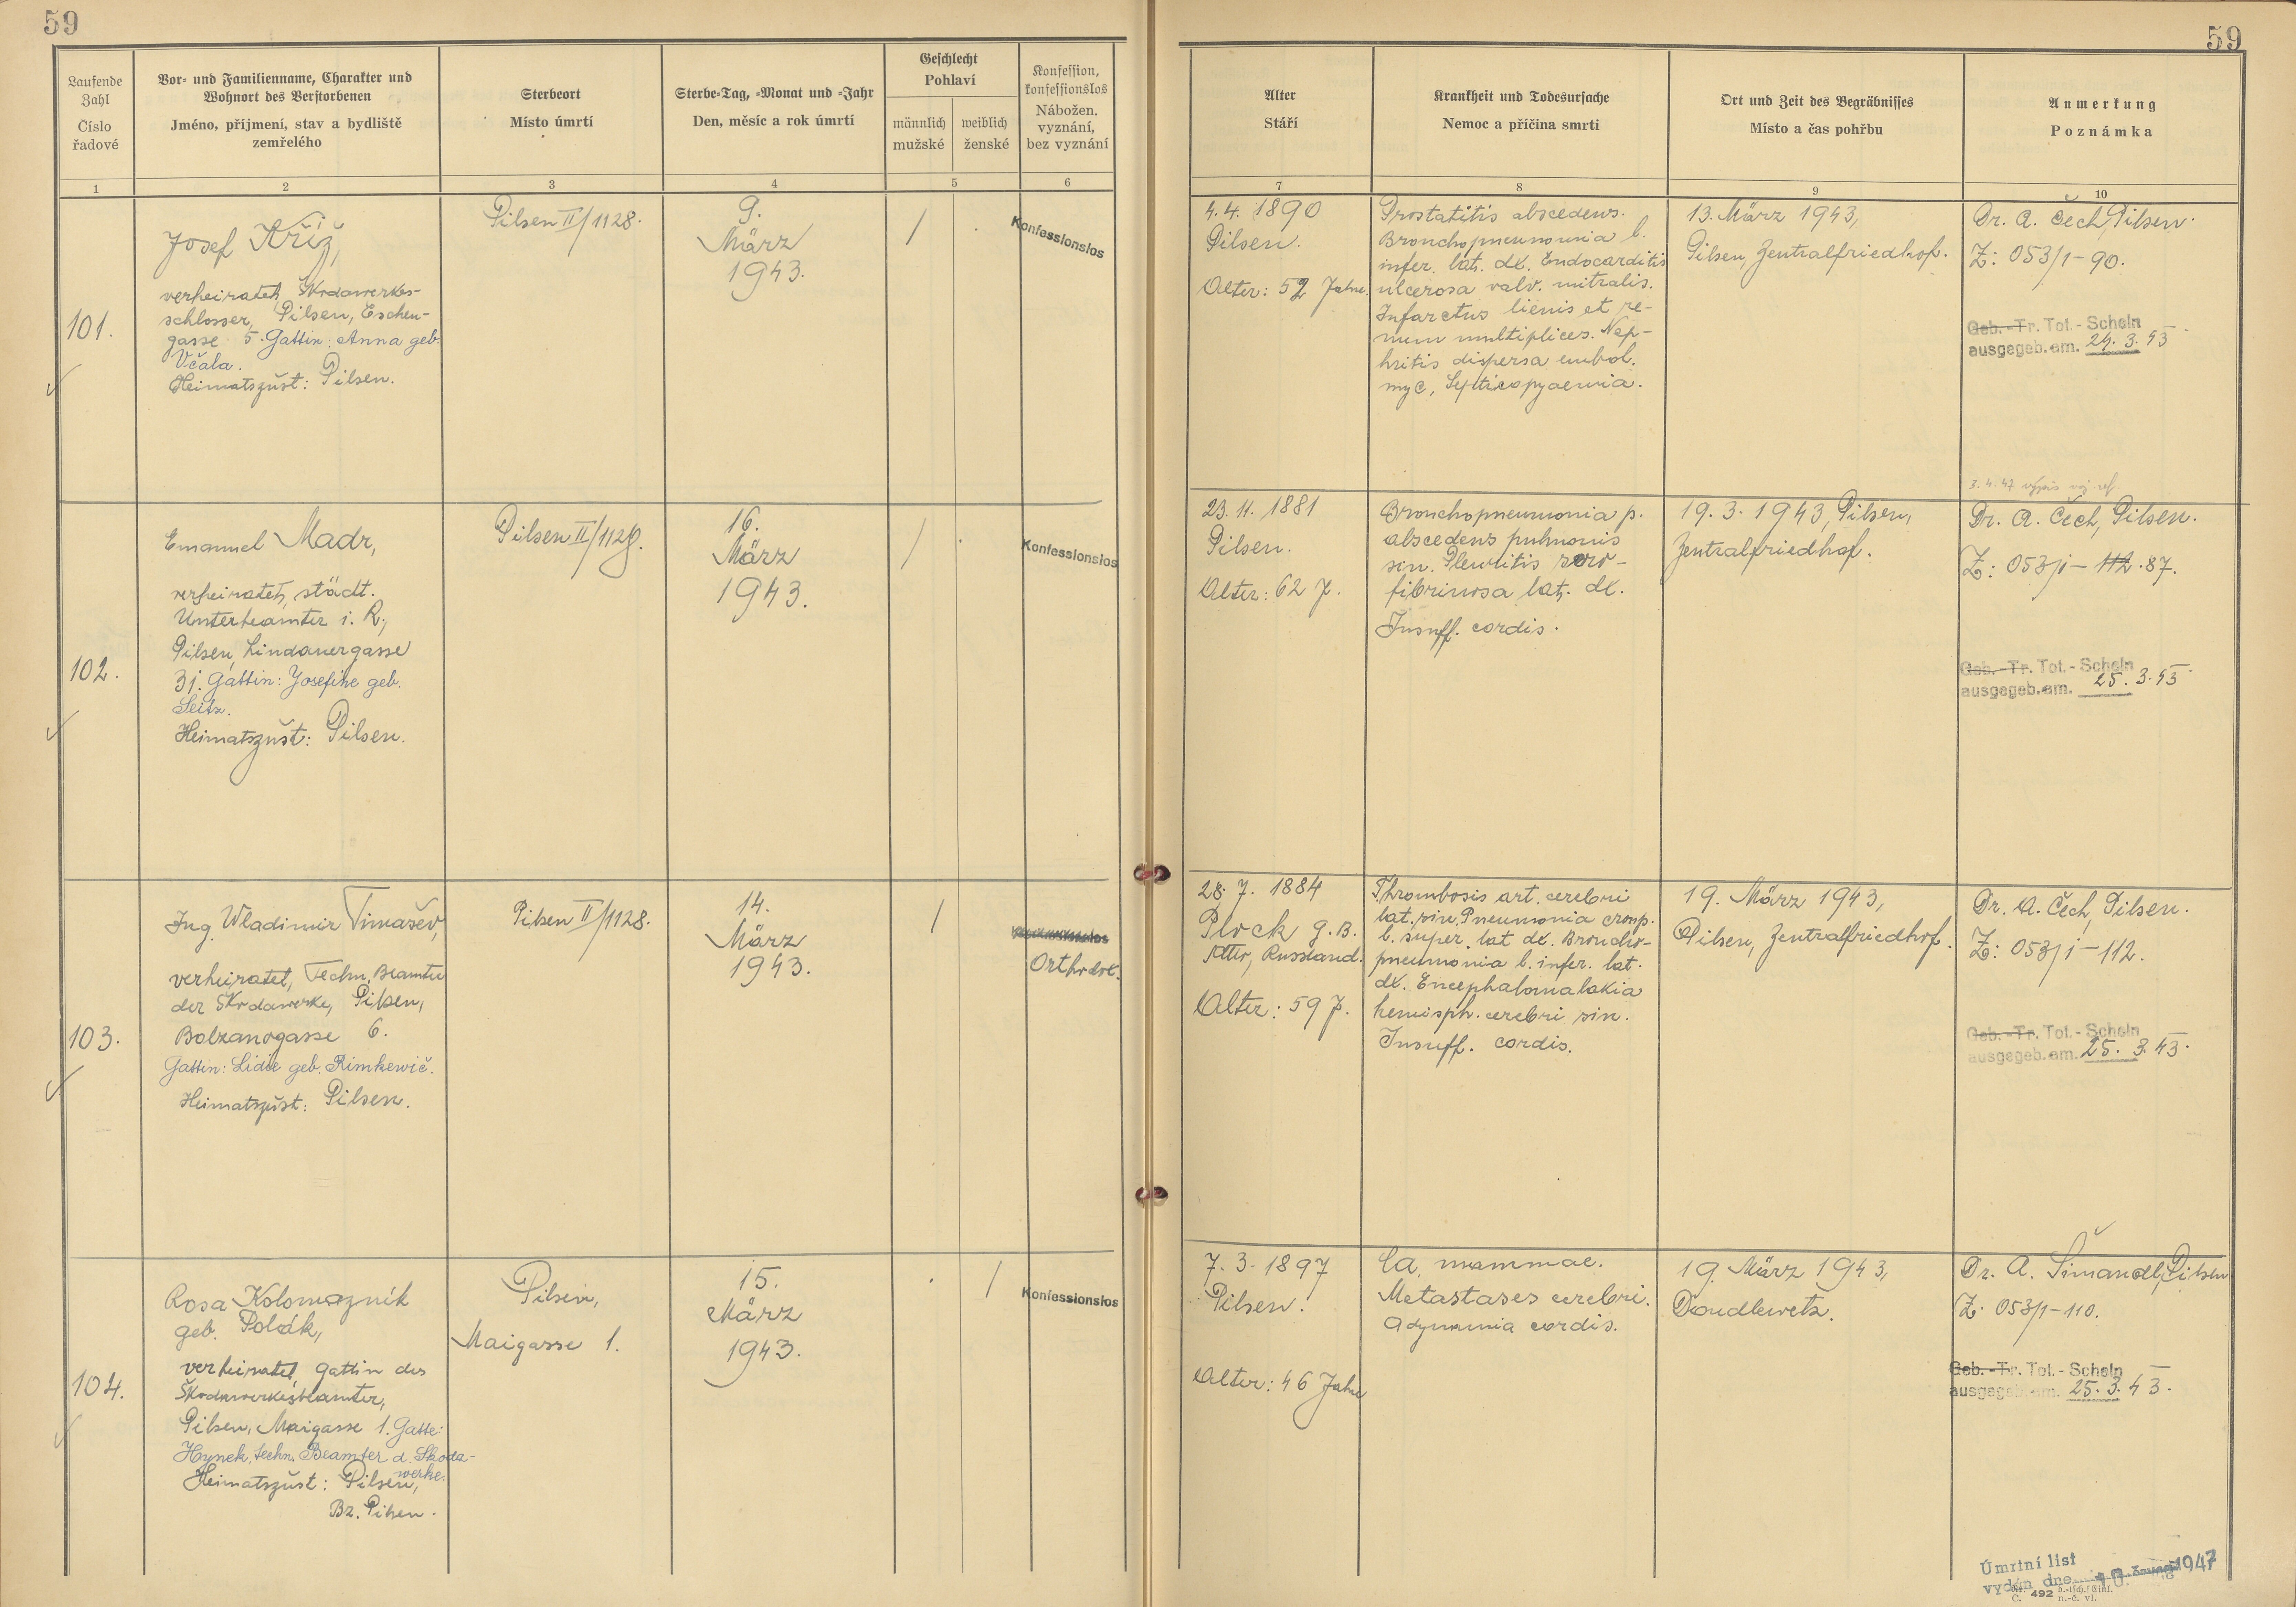 59
Laufende Zahl
Číslo řadové
Vor- und Familienname, Charakter und
Wohnort des Verstorbenen
Jméno, příjmení, stav a bydliště
zemřelého
Sterbeort
Místo úmrtí
Sterbe-Tag, -Monat und -Jahr
Den, měsíc a rok úmrtí
Geschlecht
Pohlaví
männlich
mužské
weiblich
ženské
Konfession,
konfessionslos
Nábožen.
vyznání,
bez vyznání
1
2
3
4
5
6
101.
Josef Kříž,
verheiratet, Škodawerkes-
schlosser, Pilsen, Eschen-
gasse 5. Gattin: Anna geb.
Včala.
Heimatszust: Pilsen.
Pilsen II/1128.
9.
März
1943.
/
Konfessionslos
102.
Emanuel Madr,
verheiratet, städt.
Unterbeamter i. R.,
Pilsen, Lindauergasse
31. Gattin: Josefine geb.
Seitz.
Heimatszust: Pilsen.
Pilsen II/1128.
16.
März
1943.
/
Konfessionslos
103.
Ing. Wladimir Timašev,
verheiratet, Techn. Beamter
der Škodawerke, Pilsen,
Bolzanogasse 6.
Gattin: Lidie geb. Rimkewič.
Heimatszust: Pilsen.
Pilsen II/1128.
14.
März
1943.
/
Orthodox.
104.
Rosa Kolomazník
geb. Polák,
verheiratet, Gattin des
Škodawerkesbeamter,
Pilsen, Maigasse 1. Gatte:
Hynek, techn. Beamter d. Škoda-
werke.
Heimatszust: Pilsen,
Bz. Pilsen.
Pilsen,
Maigasse 1.
15.
März
1943.
/
Konfessionslos
59
Alter
Stáří
Krankheit und Todesursache
Nemoc a příčina smrti
Ort und Zeit des Begräbnisses
Místo a čas pohřbu
Anmerkung
Poznámka
7
8
9
10
4.4. 1890
Pilsen.
Alter: 52 Jahre.
Prostatitis abscedens.
Bronchopneumonia l.
infer. lat. dx. Endocarditis
ulcerosa valv. mitralis.
Infarctus lienis et re-
num multiplices. Nep-
hritis dispersa embol.
myc, Septicopyaemia.
13. März 1943,
Pilsen, Zentralfriedhof.
Dr. A. Čech, Pilsen.
Z: 053/1-90.
Geb.-Tr. Tot.-Schein
ausgegeb. am. 24. 3. 43
3. 4. 47
23. 11. 1881
Pilsen.
Alter: 62 J.
Bronchopneumonia p.
abscedens pulmonis
sin. Pleuritis sero-
fibrinosa lat. dx.
Insuff. cordis.
19. 3. 1943, Pilsen,
Zentralfriedhof.
Dr. A. Čech, Pilsen.
Z: 053/1-112.87.
Geb.-Tr. Tot.-Schein
ausgegeb. am. 25. 3. 43
28. 7. 1884
Plock g. B.
Russland.
Alter: 59 J.
Thrombosis art. cerebri
lat. sin. Pneumonia croup.
l. super. lat dx. Broncho-
pneumonia l. infer. lat.
dx. Encephalomalakia
hemisph. cerebri sin.
Insuff. cordis.
19. März 1943,
Pilsen, Zentralfriedhof.
Dr. A. Čech, Pilsen.
Z: 053/1-112.
Geb.-Tr. Tot.-Schein
ausgegeb. am. 25. 3. 43.
7. 3. 1897
Pilsen.
Alter: 46 Jahre
Ca. mammae.
Metastases cerebri.
Adynamia cordis.
19. März 1943,
Doudlewetz.
Dr. A. Šimandl, Pilsen
Z: 053/1-110.
Geb.-Tr. Tot.-Schein
ausgegeb. am. 25. 3. 43.
Úmrtní list
vydán dne 1947
Č. 492